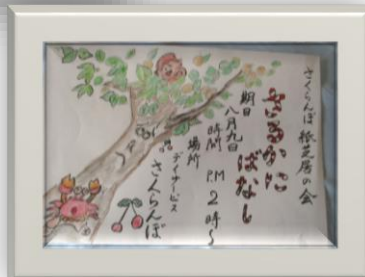 さくらんぼ紙芝居の会
さるかに
ばなし
期日
八月九日
時間 PM 2時〜
場所
デイサービス
さくらんぼ